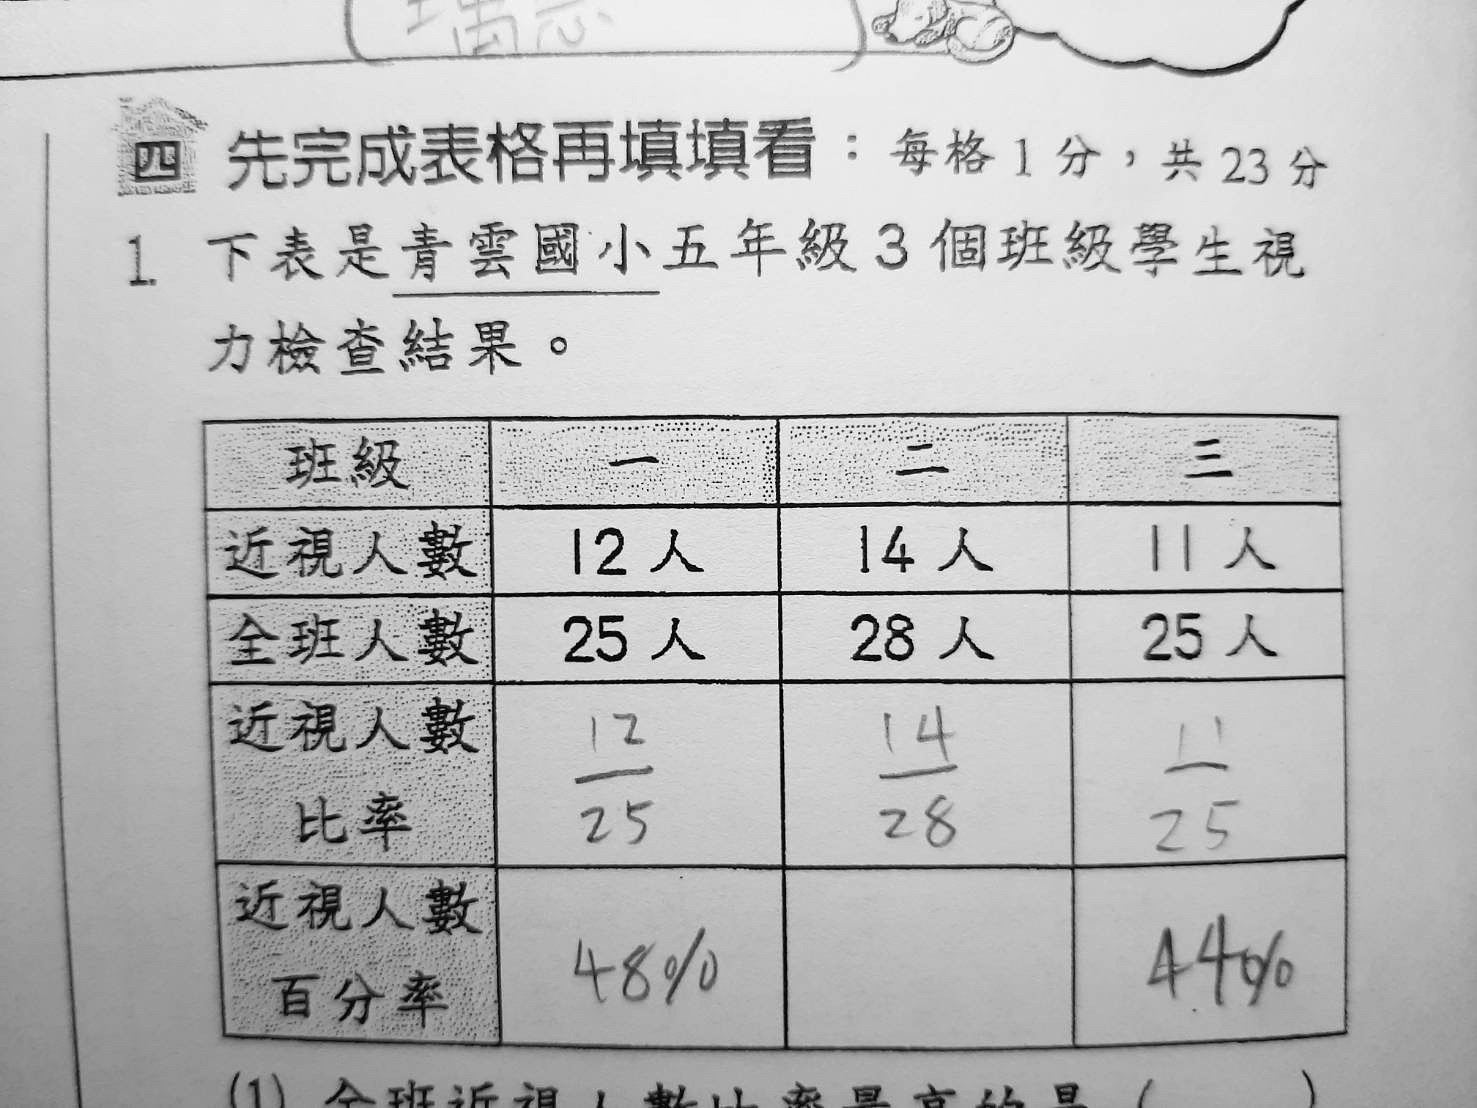 四 先完成表格再填填看：每格1分，共23分
1. 下表是青雲國小五年級3個班級學生視
力檢查結果。
班級 一 二 三
近視人數 12人 14人 11人
全班人數 25人 28人 25人
近視人數比率 12/25 14/28 11/25
近視人數百分率 48% 44%
(1) 全班近視人數比率最高的是（ ）